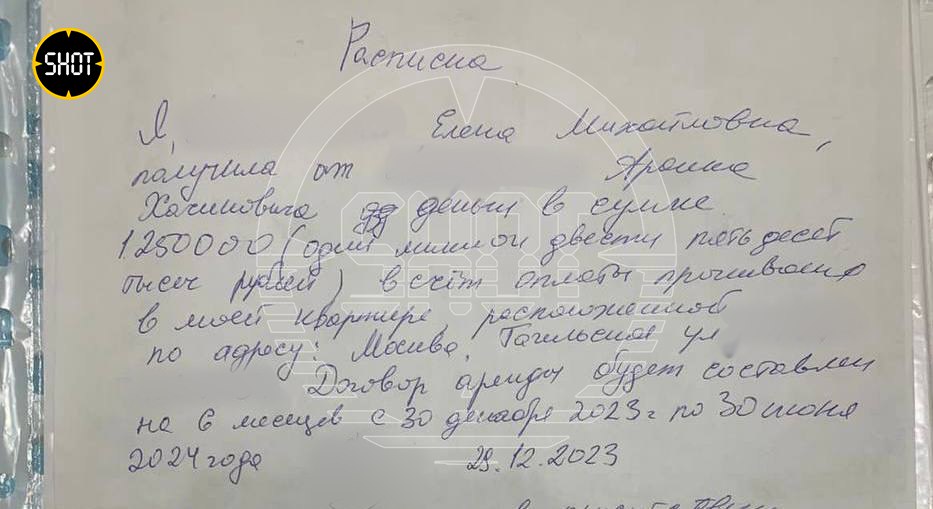 SHOT
Расписка
Я, Елена Михайловна,
получила от Араика
Хачиковича деньги в сумме
1250000 (один миллион двести пятьдесят
тысяч рублей) в счёт оплаты проживания
в моей квартире, расположенной
по адресу: Москва, Тагильская ул
Договор аренды будет составлен
на 6 месяцев с 30 декабря 2023 г по 30 июня
2024 года 29.12.2023